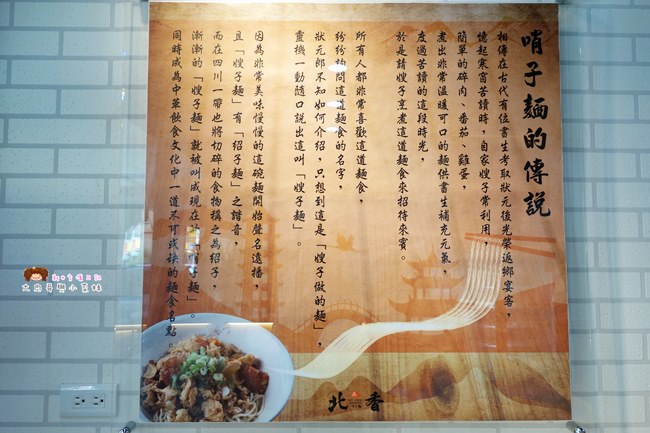 哨子麵的傳說
相傳在古代有位書生考取狀元後光榮返鄉宴客，
憶起寒窗苦讀時，自家嫂子常利用，
簡單的碎肉、番茄、雞蛋，
煮出非常溫暖可口的麵供書生補充元氣，
度過苦讀的這段時光，
於是請嫂子烹煮這道麵食來招待來賓。
所有人都非常喜歡這道麵食，
紛紛詢問這道麵食的名字，
狀元郎不知如何介紹，只想到這是「嫂子做的麵」，
靈機一動隨口說出這叫「嫂子麵」。
因為非常美味慢慢的這碗麵開始聲名遠播，
且「嫂子麵」有「紹子麵」之諧音，
而在四川一帶也將切碎的食物稱之為紹子，
漸漸的「嫂子麵」就被叫成現在的「哨子麵」。
同時成為中華飲食文化中一道不可或缺的麵食名點。
北香